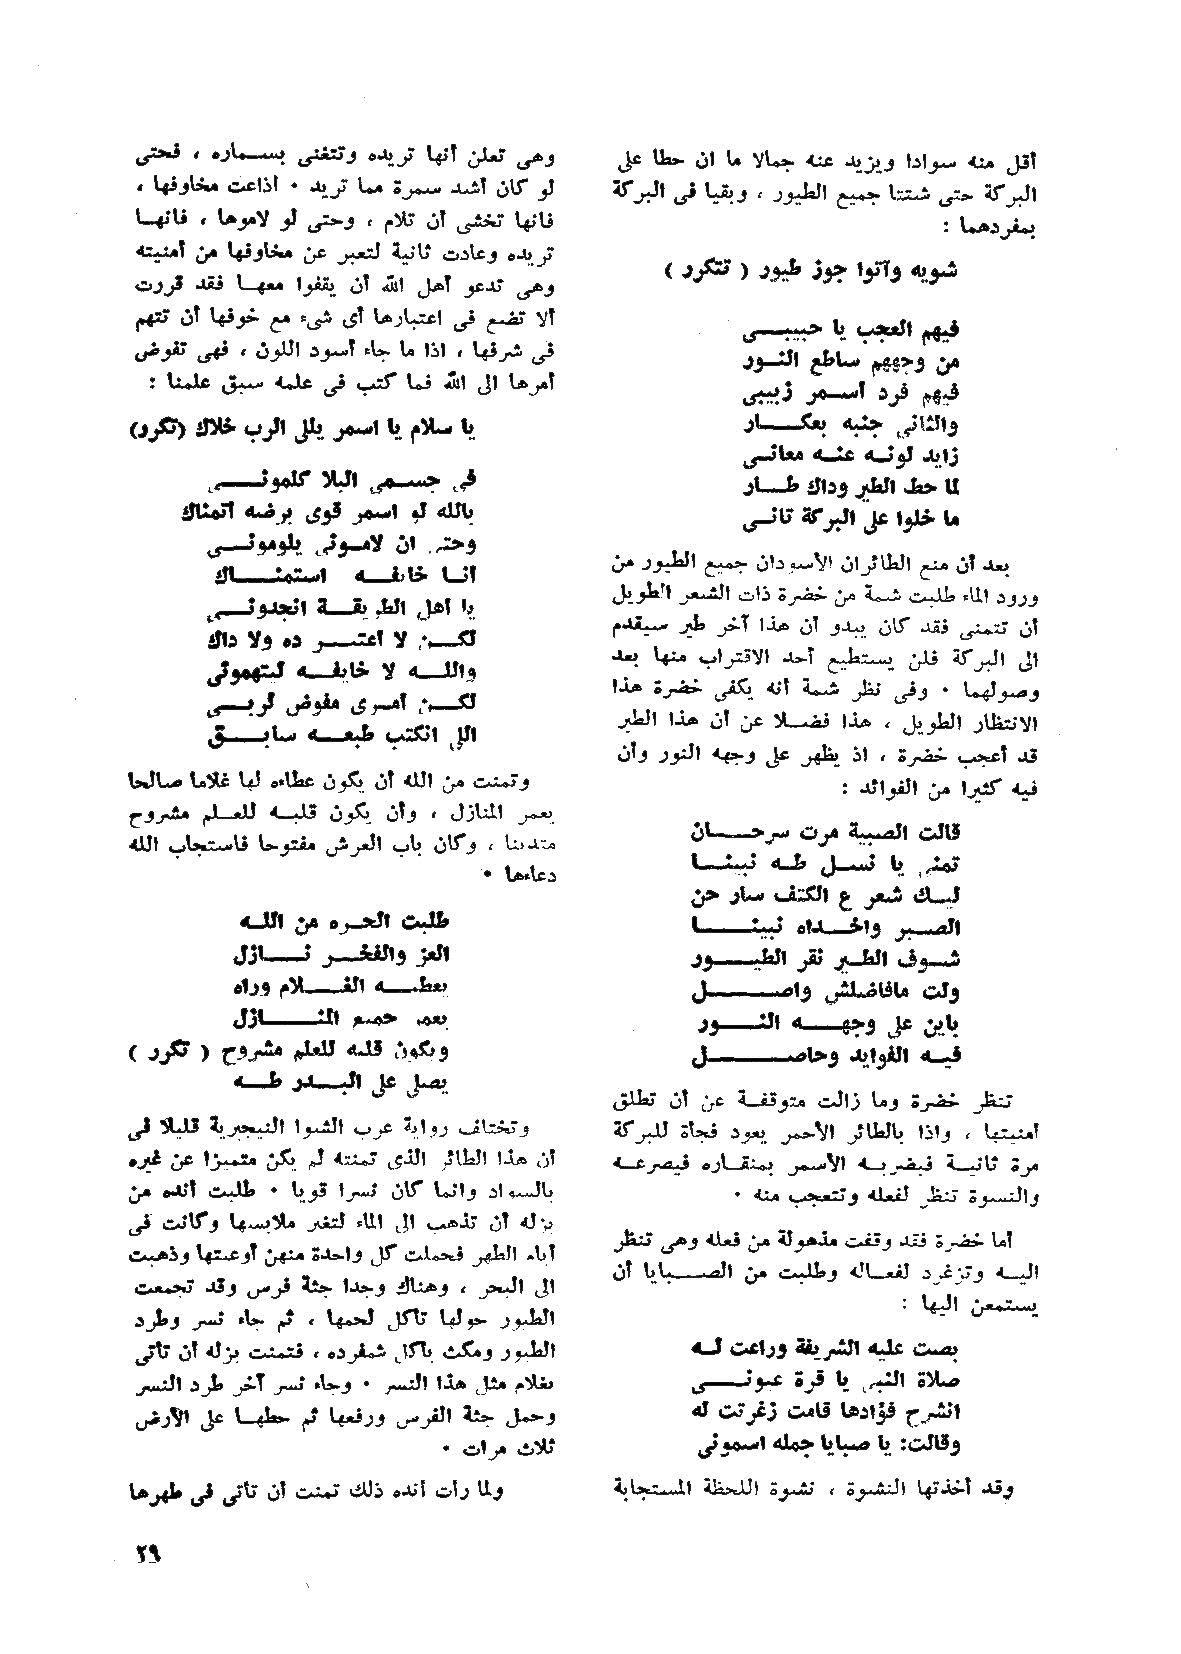 أقل منه سوادا ويزيد عنه جمالا ما ان حطا على
البركة حتى شتتا جميع الطيور ، وبقيا فى البركة
بمفردهما :
شويه وآتوا جوز طيور ( تتكرر )
فيهم العجب يا حبيبــى
من وجههم ساطع النــور
فيهم فرد أســمر زبيبى
والثانى جنبه بعكــــار
زايد لونــه عنــه معانــى
لما حط الطير وداك طــار
ما خلوا على البركة تانــى
بعد أن منع الطائران الأسودان جميع الطيور من
ورود الماء طلبت شمة من خضرة ذات الشعر الطويل
أن تتمنى فقد كان يبدو أن هذا آخر طير سيقدم
الى البركة فلن يستطيع أحد الاقتراب منها بعد
وصولهما . وفى نظر شمة أنه يكفى خضرة هذا
الانتظار الطويل ، هذا فضــلا عن أن هذا الطير
قد أعجب خضرة ، اذ يظهر على وجهه النور وأن
فيه كثيرا من الفوائد :
قالت الصبية مرت سرحـــان
تمنى يا نســل طــه نبينــــا
ليــك شعر ع الكتف سار حن
الصــبر واخــداه نبينــــا
شــوف الطــير نقر الطيــــور
ولت مافاضلش واصـــــل
باين على وجهــــه النــــور
فيــه الفوايد وحاصــــــل
تنظر خضرة وما زالت متوقفــة عن أن تطلق
أمنيتها ، واذا بالطائر الأحمر يعود فجأة للبركة
مرة ثانيــة فيضربــه الأسمر بمنقــاره فيصرعــه
والنسوة تنظر لفعله وتتعجب منه .
أما خضرة فقد وقفت مذهولة من فعله وهى تنظر
اليــه وتزغرد لفعــاله وطلبت من الصــبايا أن
يستمعن اليها :
بصت عليه الشريفة وراعت لــه
صلاة النبى يا قرة عيونــــى
انشرح فؤادها قامت زغرتت له
وقالت: يا صبايا جمله اسمونى
وقد أخذتها النشوة ، نشوة اللحظة المستجابة
وهى تعلن أنها تريده وتتغنى بســماره ، فحتى
لو كان أشد سمرة مما تريد . أذاعت مخاوفها ،
فانها تخشى أن تلام ، وحتى لو لاموها ، فانهــا
تريده وعادت ثانية لتعبر عن مخاوفها من أمنيته
وهى تدعو أهل الله أن يقفوا معهــا فقد قررت
ألا تضع فى اعتبارها أى شىء مع خوفها أن تتهم
فى شرفها ، اذا ما جاء أسود اللون ، فهى تفوض
أمرها الى الله فما كتب فى علمه سبق علمنا :
يا سلام يا اسمر يللى الرب خلاك (تكرر)
فى جســمى البلا كلمونــــى
بالله لو اسمر قوى برضه أتمناك
وحتى ان لامــونى يلومونــــى
أنــا خايفــه استمنــــاك
يا أهل الطريقــة انجدونــــى
لكــن لا أعتــــبر ده ولا داك
واللــــه لا خايفــه لتتهمونى
لكــن أمــرى مفوض لربــــى
اللى انكتب طبعــــه سابــــق
وتمنت من الله أن يكون عطاءه لها غلاما صالحا
يعمر المنازل ، وأن يكون قلبــه للعــلم مشروح
متدينا ، وكان باب العرش مفتوحا فاستجاب الله
دعاءها .
طلبت الحــره من اللــه
العز والفخــــر نــــازل
يعطيــــه الغــــلام وراه
يعمر جميع المنــــازل
ويكون قلبه للعلم مشروح ( تكرر )
يصلى على البــدر طــه
وتختلف رواية عرب الشوا النيجيرية قليلا فى
أن هذا الطائر الذى تمنته لم يكن متميزا عن غيره
بالسواد وانما كان نسرا قويا . طلبت أنده من
بزله أن تذهب الى الماء لتغير ملابسها وكانت فى
أيام الطهر فحملت كل واحدة منهن أوعيتها وذهبت
الى البحر ، وهناك وجدا جثة فرس وقد تجمعت
الطيور حولها تأكل لحمها ، ثم جاء نسر وطرد
الطيور ومكث يأكل بمفرده ، فتمنت بزله أن تأتى
بغلام مثل هذا النسر . وجاء نسر آخر طرد النسر
وحمل جثة الفرس ورفعها ثم حطهــا على الأرض
ثلاث مرات .
ولما رأت أنده ذلك تمنت أن تأتى فى طهرها
٢٩